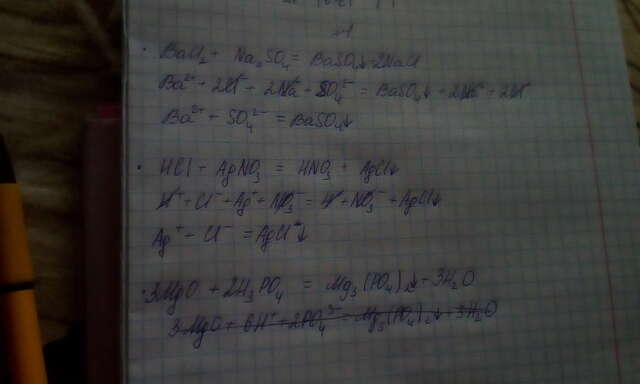 BaCl₂ + Na₂SO₄ = BaSO₄↓ + 2NaCl
Ba²⁺ + 2Cl⁻ + 2Na⁺ + SO₄²⁻ = BaSO₄↓ + 2Na⁺ + 2Cl⁻
Ba²⁺ + SO₄²⁻ = BaSO₄↓
HCl + AgNO₃ = HNO₃ + AgCl↓
H⁺ + Cl⁻ + Ag⁺ + NO₃⁻ = H⁺ + NO₃⁻ + AgCl↓
Ag⁺ + Cl⁻ = AgCl↓
3MgO + 2H₃PO₄ = Mg₃(PO₄)₂↓ + 3H₂O
3MgO + 6H⁺ + 2PO₄³⁻ = Mg₃(PO₄)₂↓ + 3H₂O